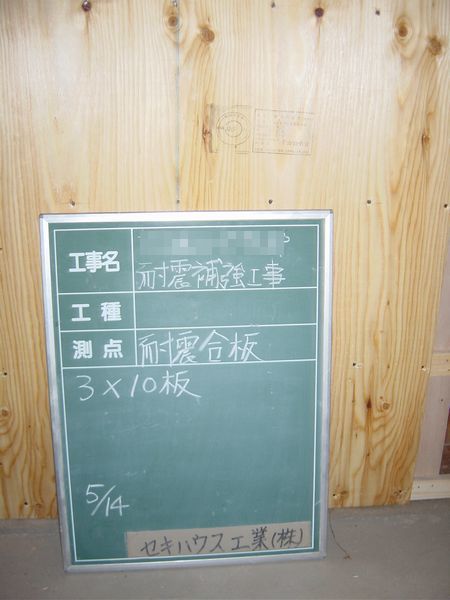 工事名
耐震補強工事
工種
測点 耐震合板
3×10板
5/14
セキハウス工業(株)